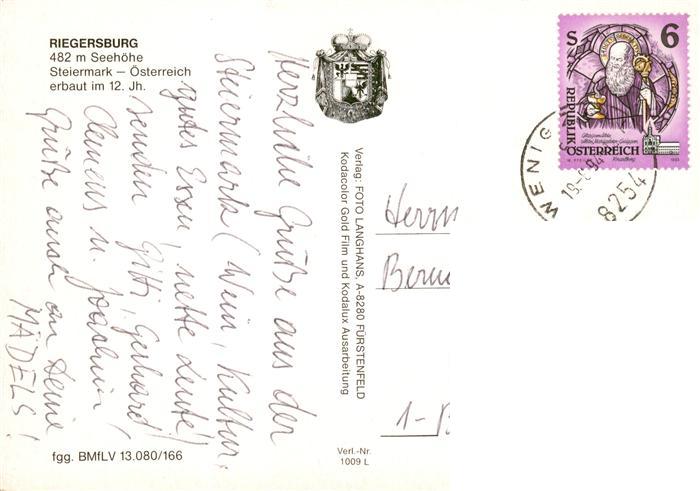 RIEGERSBURG
482 m Seehöhe
Steiermark – Österreich
erbaut im 12. Jh.
Herzliche Grüße aus der
Steiermark (Wein, Kultur,
gutes Essen, nette Leute)
senden Gitti, Gerhard,
Clemens u. Joachim!
Grüße auch an Deine
MÄDELS!
fgg. BMfLV 13.080/166
Verlag: FOTO LANGHANS, A-8280 FÜRSTENFELD
Kodacolor Gold Film und Kodalux Ausarbeitung
Verl.-Nr.
1009 L
Herrn
Bern
1-
S 6
REPUBLIK
ÖSTERREICH
1993
WENIG
8254